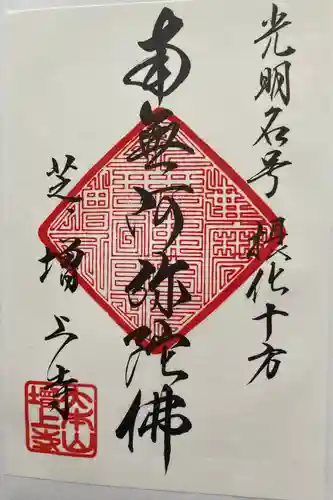 光明名号摂化十方
南無阿弥陀佛
芝 増上寺
大本山
増上寺